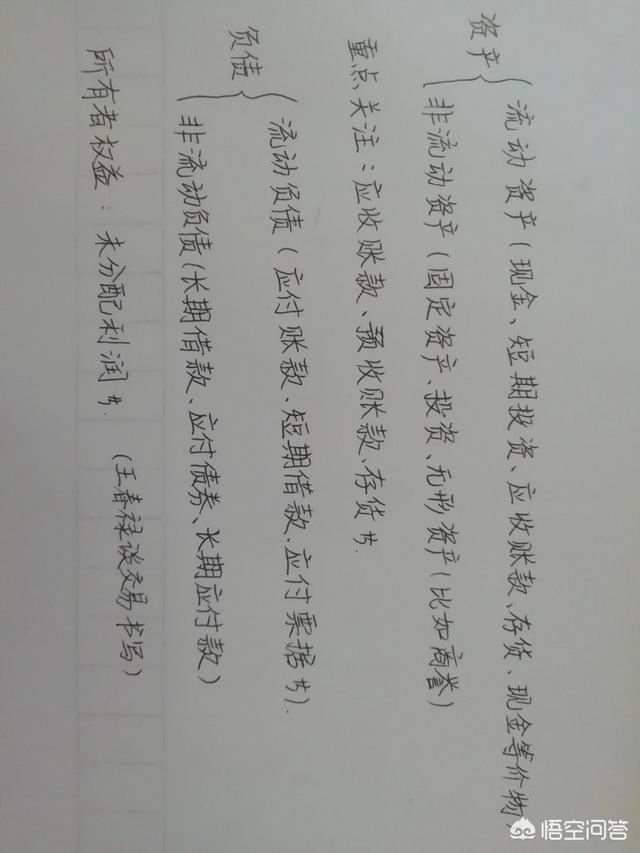 资产
流动资产(现金、短期投资、应收账款、存货、现金等价物)
非流动资产(固定资产、投资、无形资产(比如商誉)
重点关注:应收账款、预收账款、存货等.
负债
流动负债(应付账款、短期借款、应付票据等).
非流动负债(长期借款、应付债券、长期应付款)
所有者权益:未分配利润等. (王春禄谈交易书写)
悟空问答